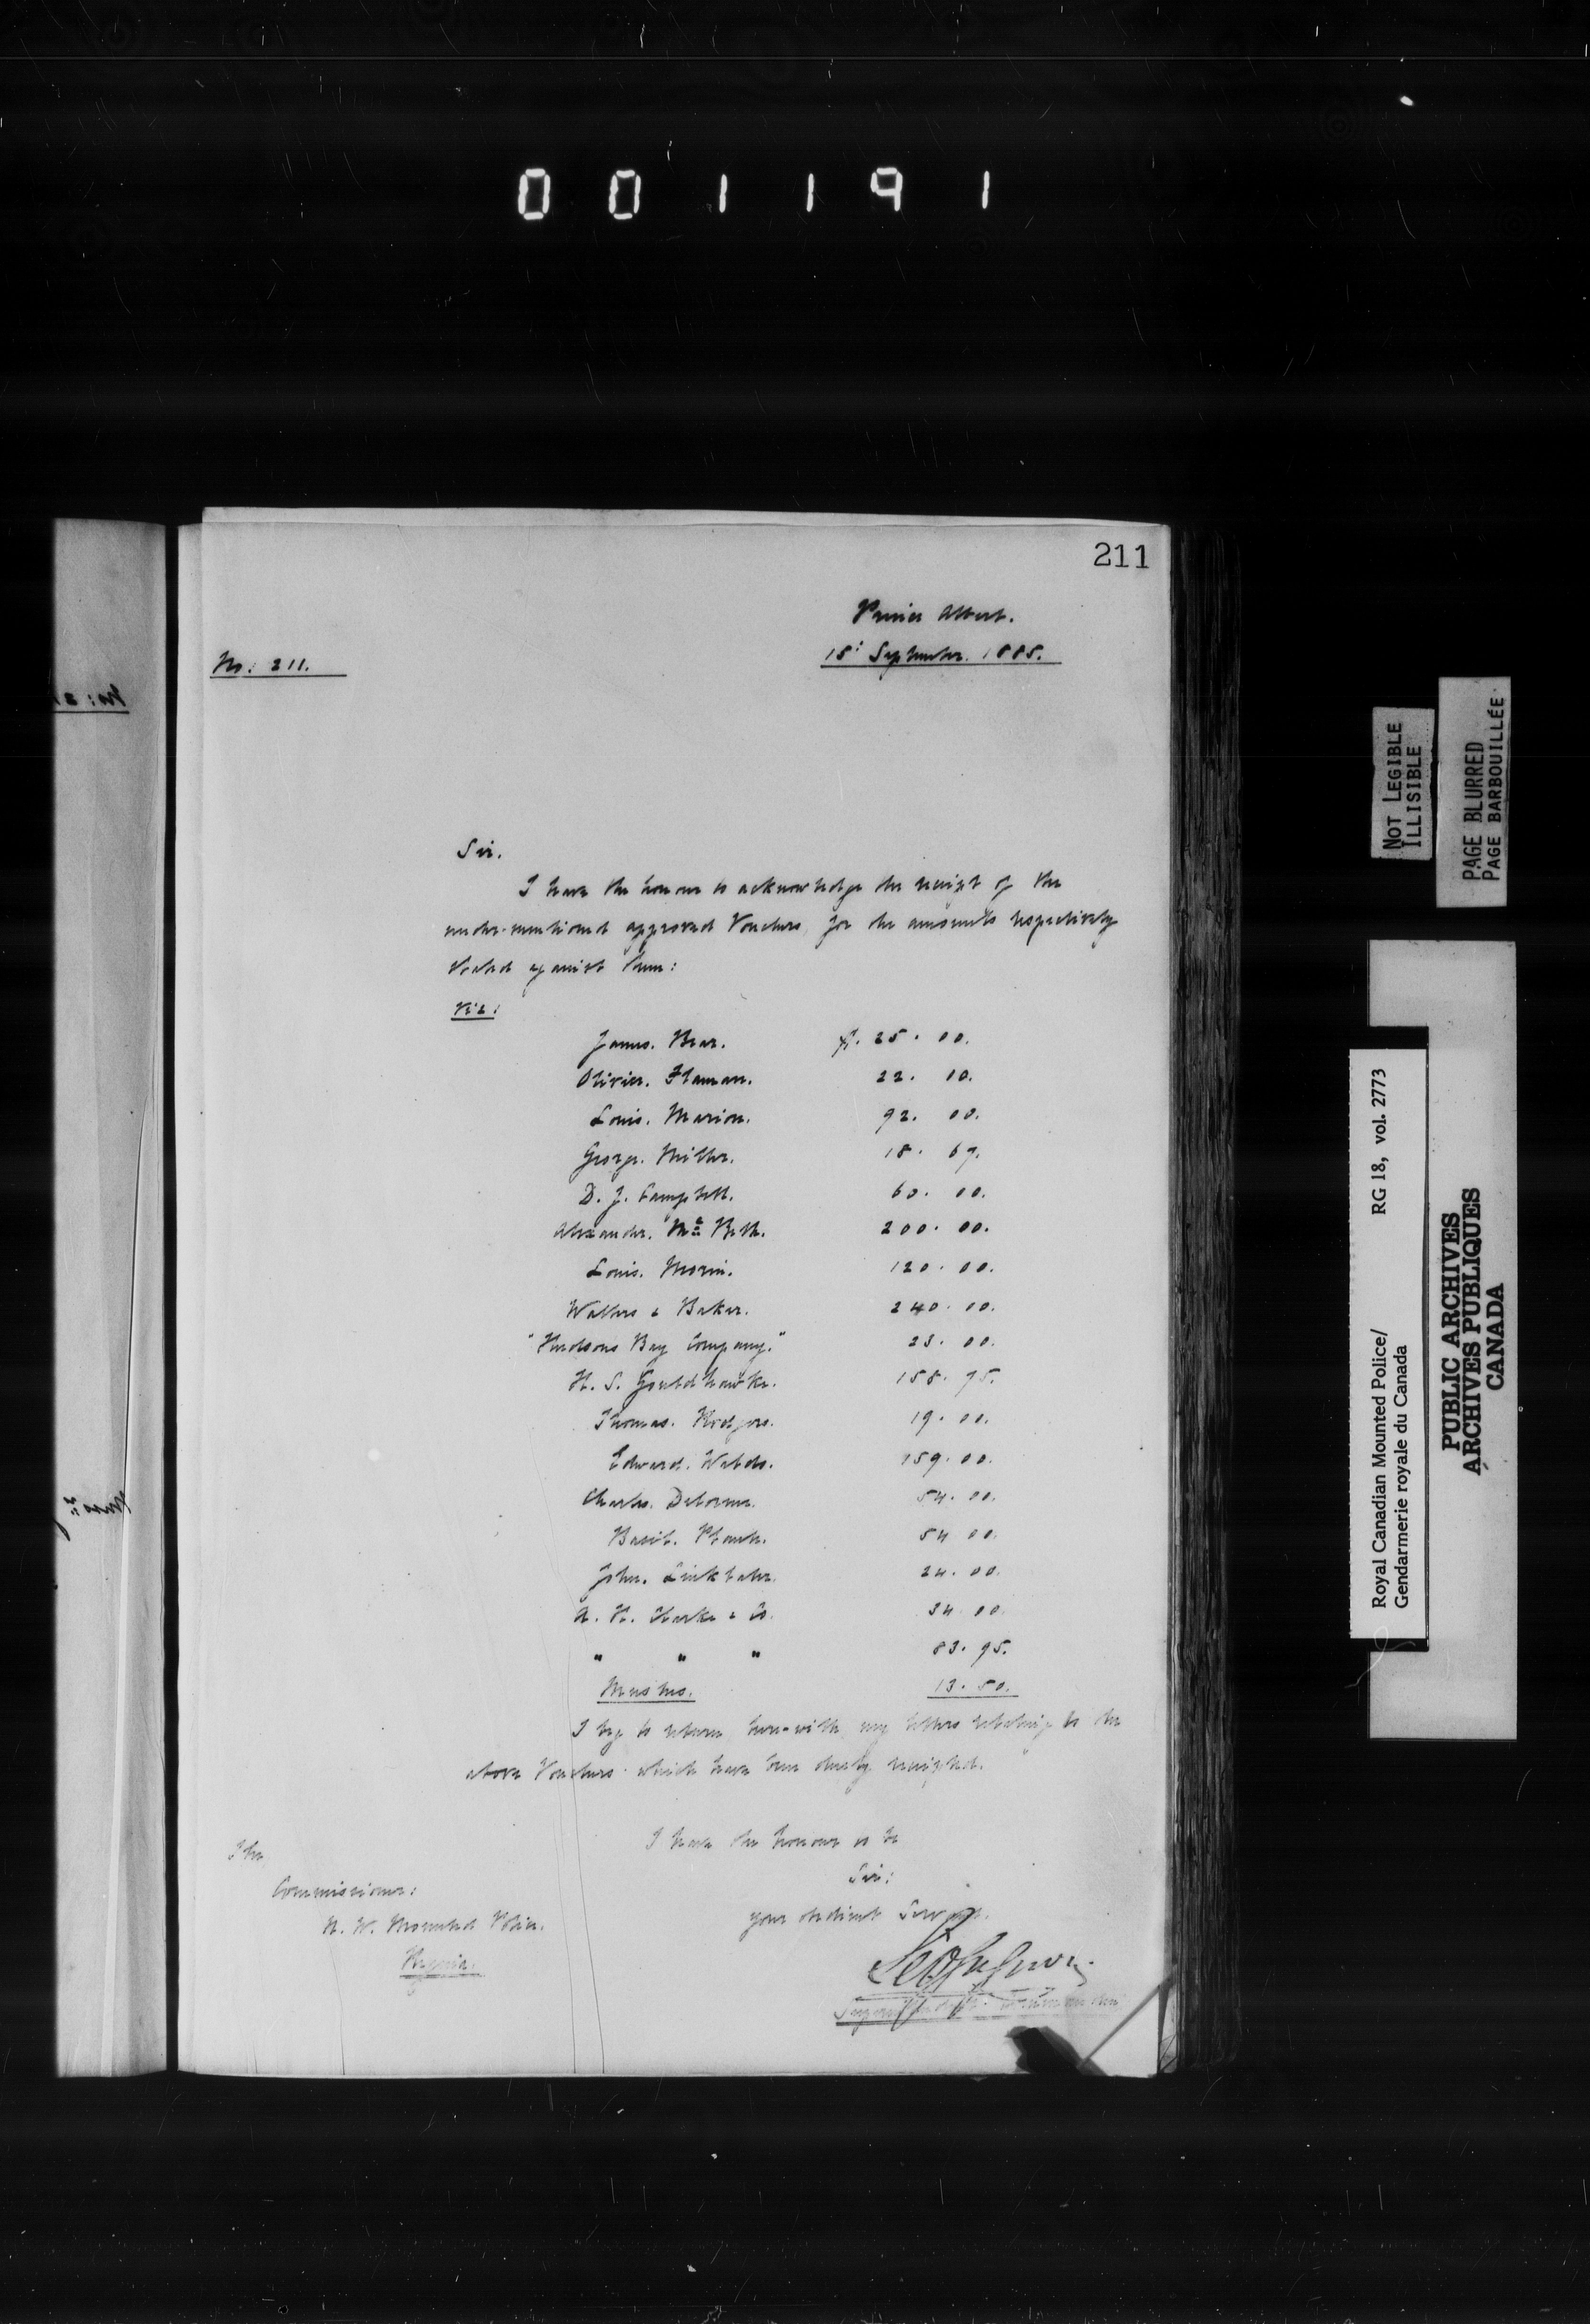 001191
211
Prince Albert.
No: 211.
18: September. 1885.
Sir.
I have the honour to acknowledge the receipt of the
under-mentioned approved Vouchers, for the amounts respectively
stated against them:
Viz:
James. Bear. $. 25. 00.
Olivier. 22. 10.
Louis. Marion. 92. 00.
George. Miller. 18. 67.
D. J. Campbell. 60. 00.
Alexander. Mc Beth. 200. 00.
Louis. Morin. 120. 00.
Walters & Baker. 240. 00.
"Hudsons Bay Company." 23. 00.
H. S. 158. 75.
Thomas. Rodgers. 19. 00.
Edward. 159. 00.
Charles. Delorme. 54. 00.
Basil. Plante. 54 00.
John. Linklater. 24. 00.
A. H. Clarke & Co. 34 00.
" " " 83. 95.
13. 50.
I beg to return, here-with, my letters relating to the
above Vouchers which have been duly receipted.
I have the honour to be
Sir:
your obedient Servant.
The
Commissioner:
N. W. Mounted Police.
Regina.
NOT LEGIBLE
ILLISIBLE
PAGE BLURRED
PAGE BARBOUILLÉE
Royal Canadian Mounted Police/ RG 18, vol. 2773
Gendarmerie royale du Canada
PUBLIC ARCHIVES
ARCHIVES PUBLIQUES
CANADA